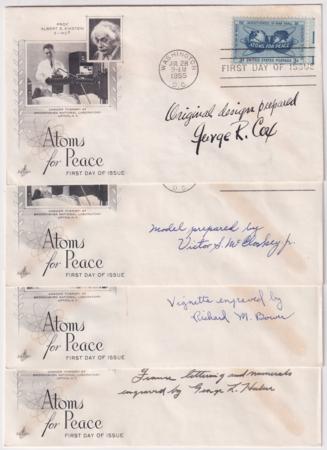 PROF.
ALBERT B. EINSTEIN
E=MC²
CANCER THERAPY AT
BROOKHAVEN NATIONAL LABORATORY
UPTON, N.Y.
Atoms
for Peace
FIRST DAY OF ISSUE
WASHINGTON
JUL 28
9-AM
1955
D.C.
ATOMS FOR PEACE
UNITED STATES POSTAGE
FIRST DAY OF ISSUE
Original design prepared
George R. Cox
CANCER THERAPY AT
BROOKHAVEN NATIONAL LABORATORY
UPTON, N.Y.
Atoms
for Peace
FIRST DAY OF ISSUE
D.C.
Model prepared by
Victor S. McCloskey Jr.
CANCER THERAPY AT
BROOKHAVEN NATIONAL LABORATORY
UPTON, N.Y.
Atoms
for Peace
FIRST DAY OF ISSUE
Vignette engraved by
Richard M. Bower
CANCER THERAPY AT
BROOKHAVEN NATIONAL LABORATORY
UPTON, N.Y.
Atoms
for Peace
FIRST DAY OF ISSUE
Frame lettering and numerals
engraved by George L. Huber